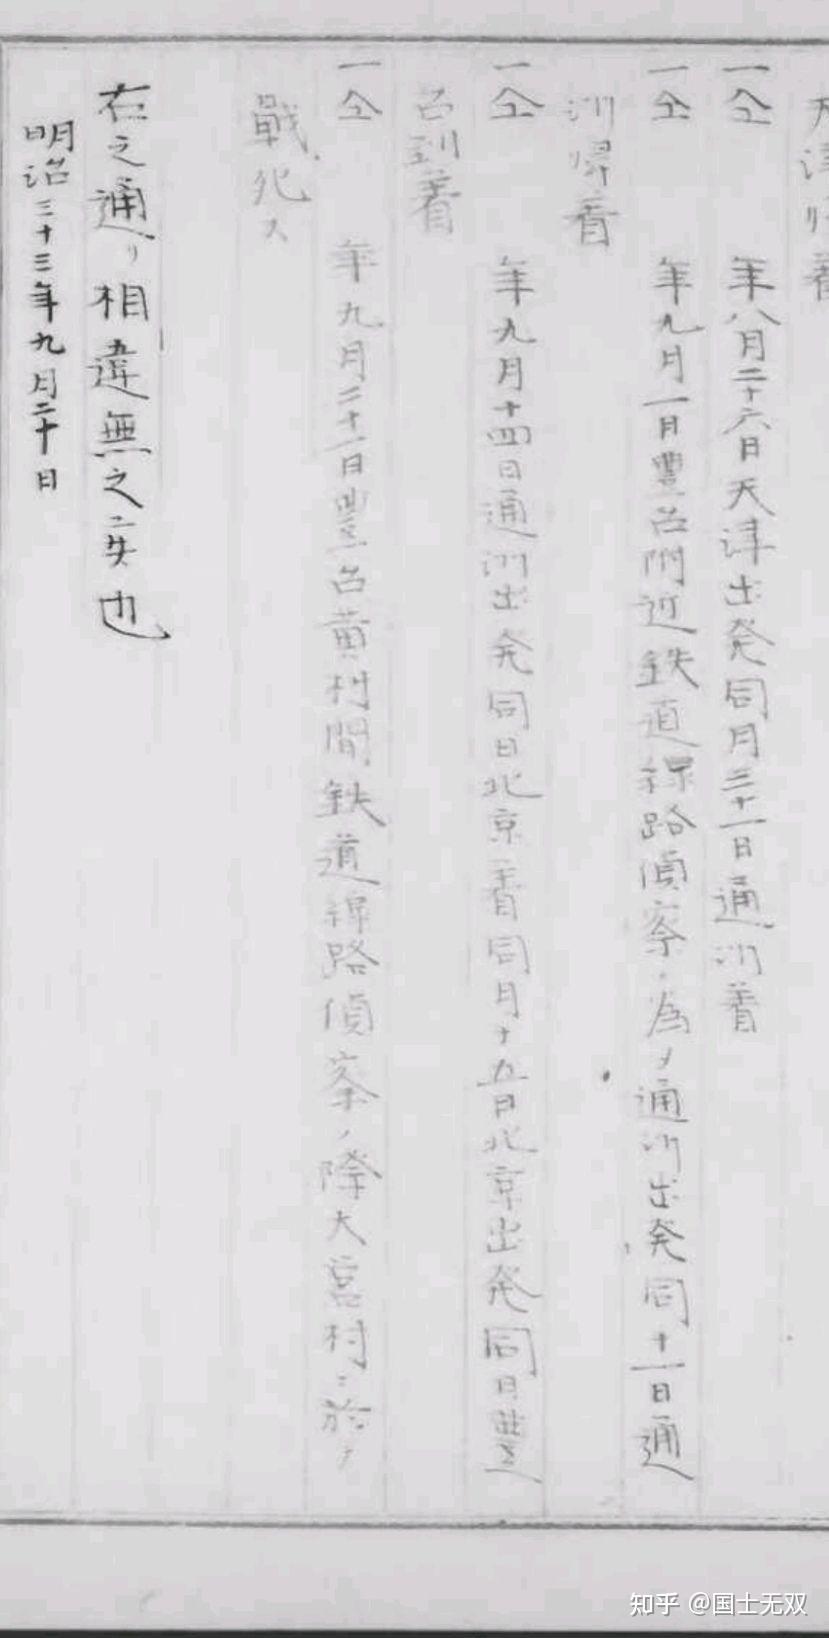 天津帰着
一仝 年八月二十六日天津出発同月三十一日通州着
一仝 年九月一日豊台附近鉄道線路偵察ノ為メ通州出発同十一日通
州帰着
一仝 年九月十四日通州出発同日北京着同月十五日北京出発同日豊
台到着
一仝 年九月二十一日豊台黄村間鉄道線路偵察ノ際大宮村ニ於テ
戰死ス
右之通リ相違無之候也
明治三十三年九月二十日
知乎 @国士无双